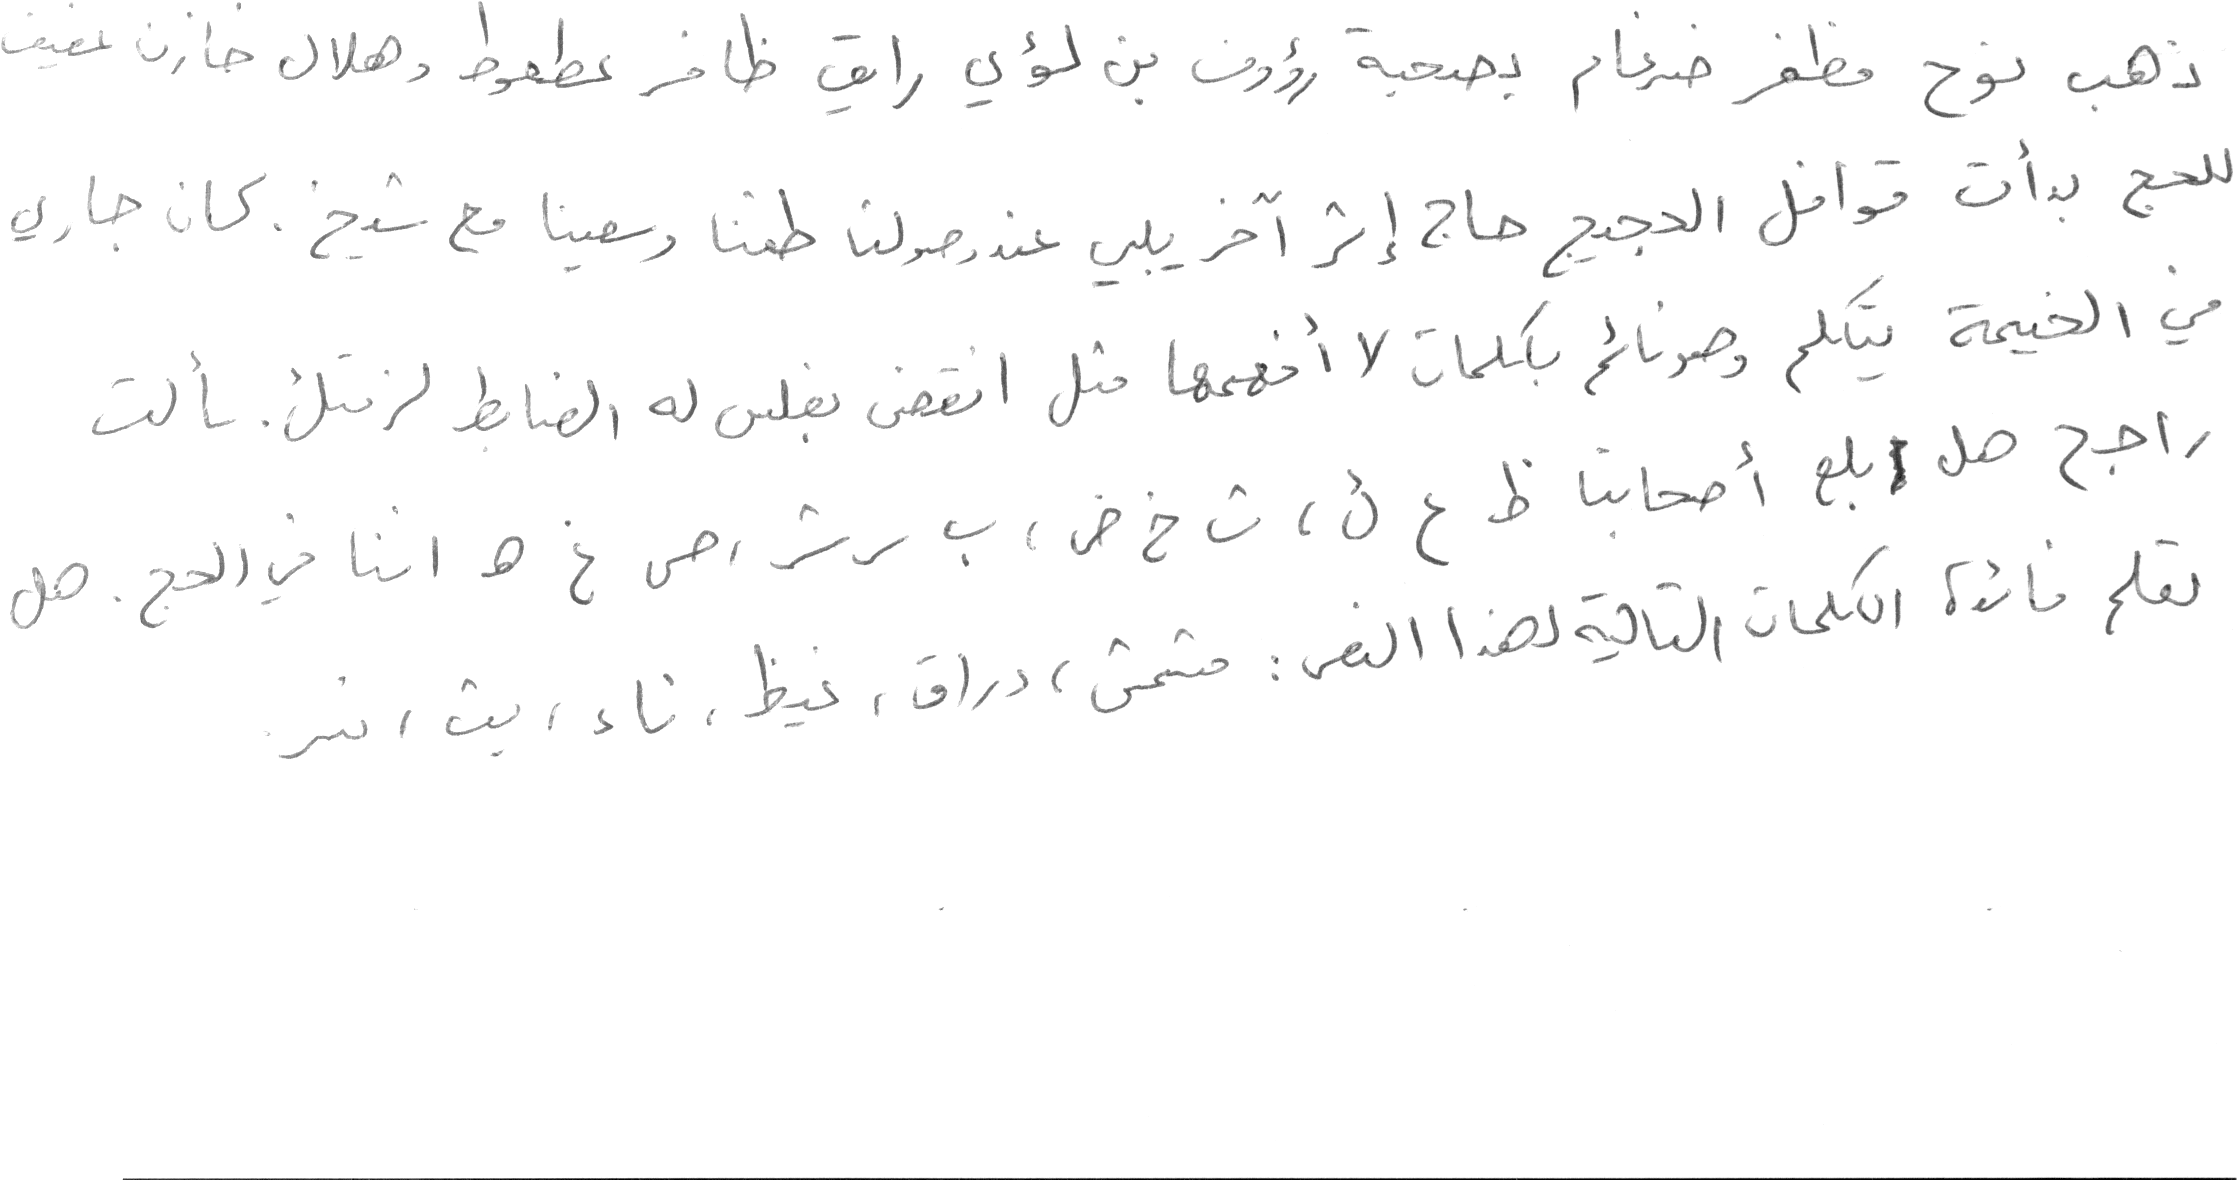 ذهب نوح مظفر ضرغام بصحبة رؤوف بن لؤي رايق ظافر عطعوط وهلال خازن عفيف
للحج بدأت قوافل الحجيج حاج إثر آخر يلبي عند وصولنا طفنا وسعينا مع شيخ. كان جاري
في الخيمة يتكلم وهو نائم بكلمات لا أفهمها مثل انقض بغلس له الضابط لزئتك. سألت
راجح هل بلع أصحابنا ظ ع ئ، ث خ ض، ب س ش، ص غ ه اننا في الحج. هل
تعلم فائدة الكلمات التالية لهذا النص: مشمش، دراق، غيظ، ناء، يث، نسر.